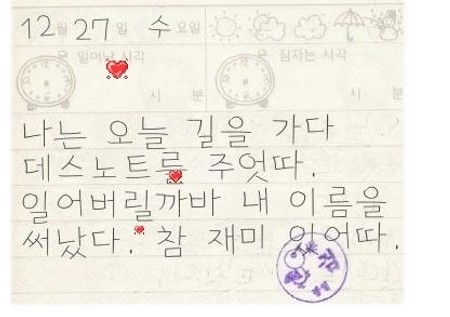 12월 27일 수요일
일어난 시각 잠자는 시각
시 분 시 분
나는 오늘 길을 가다
데스노트를 주엇따.
일어버릴까바 내 이름을
써났다. 참 재미 잇어따.